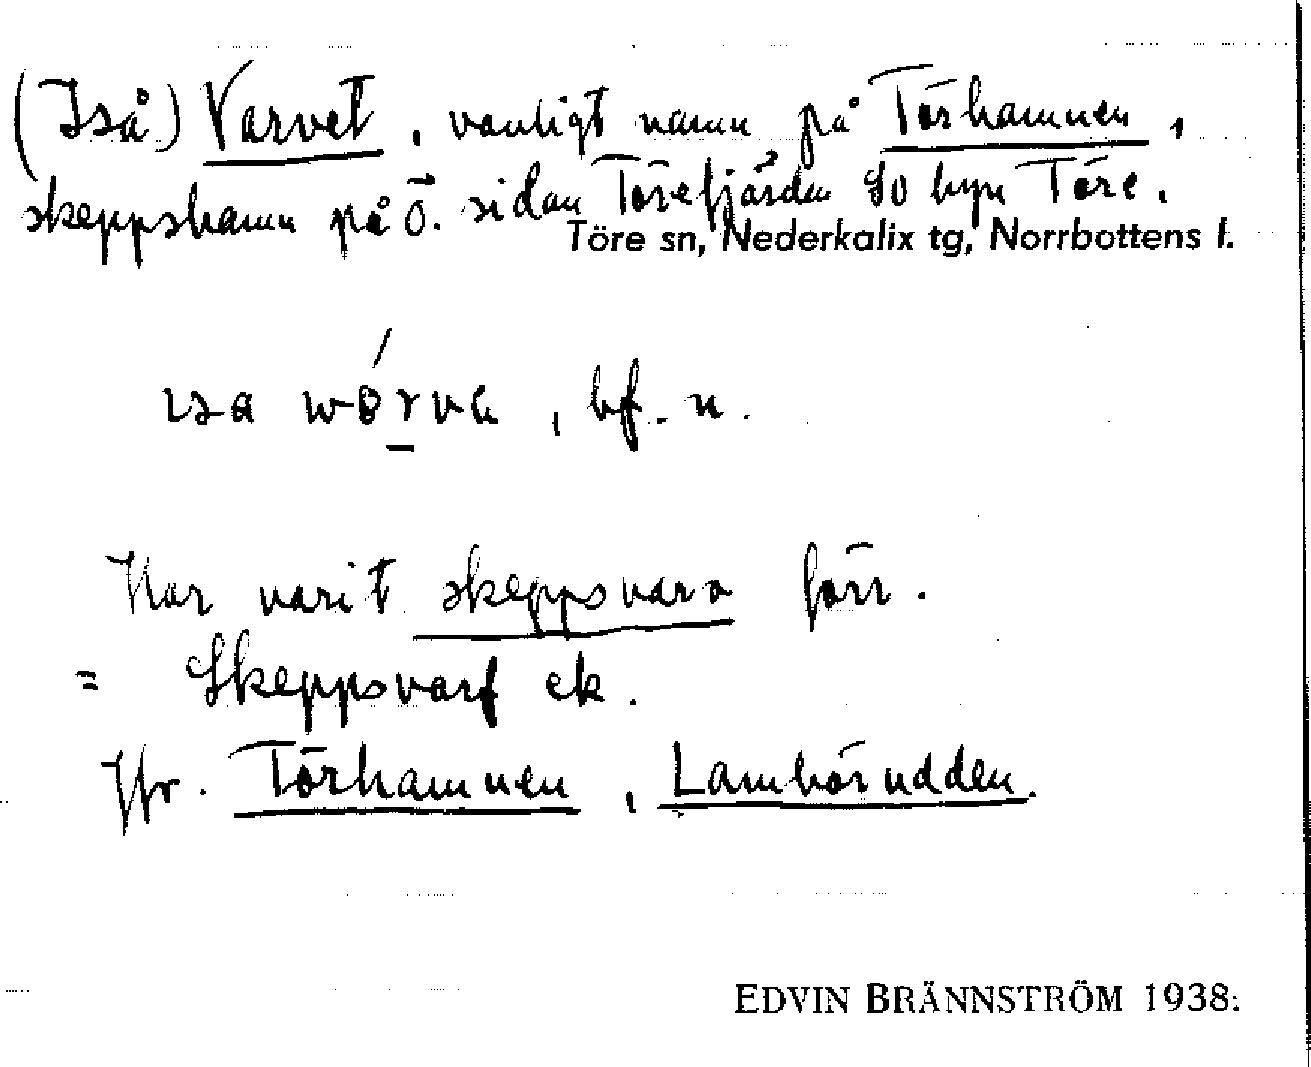 (Iså) Varvet, vanligt namn på Törhamnen,
skeppshamn på Ö. sidan Törefjärden SO byn Töre.
Töre sn, Nederkalix tg, Norrbottens l.
ɩsa , bf. n.
Har varit skeppsvarv förr.
= Skeppsvarf ek.
Jfr. Törhamnen, Lambörudden.
EDVIN BRÄNNSTRÖM 1938.